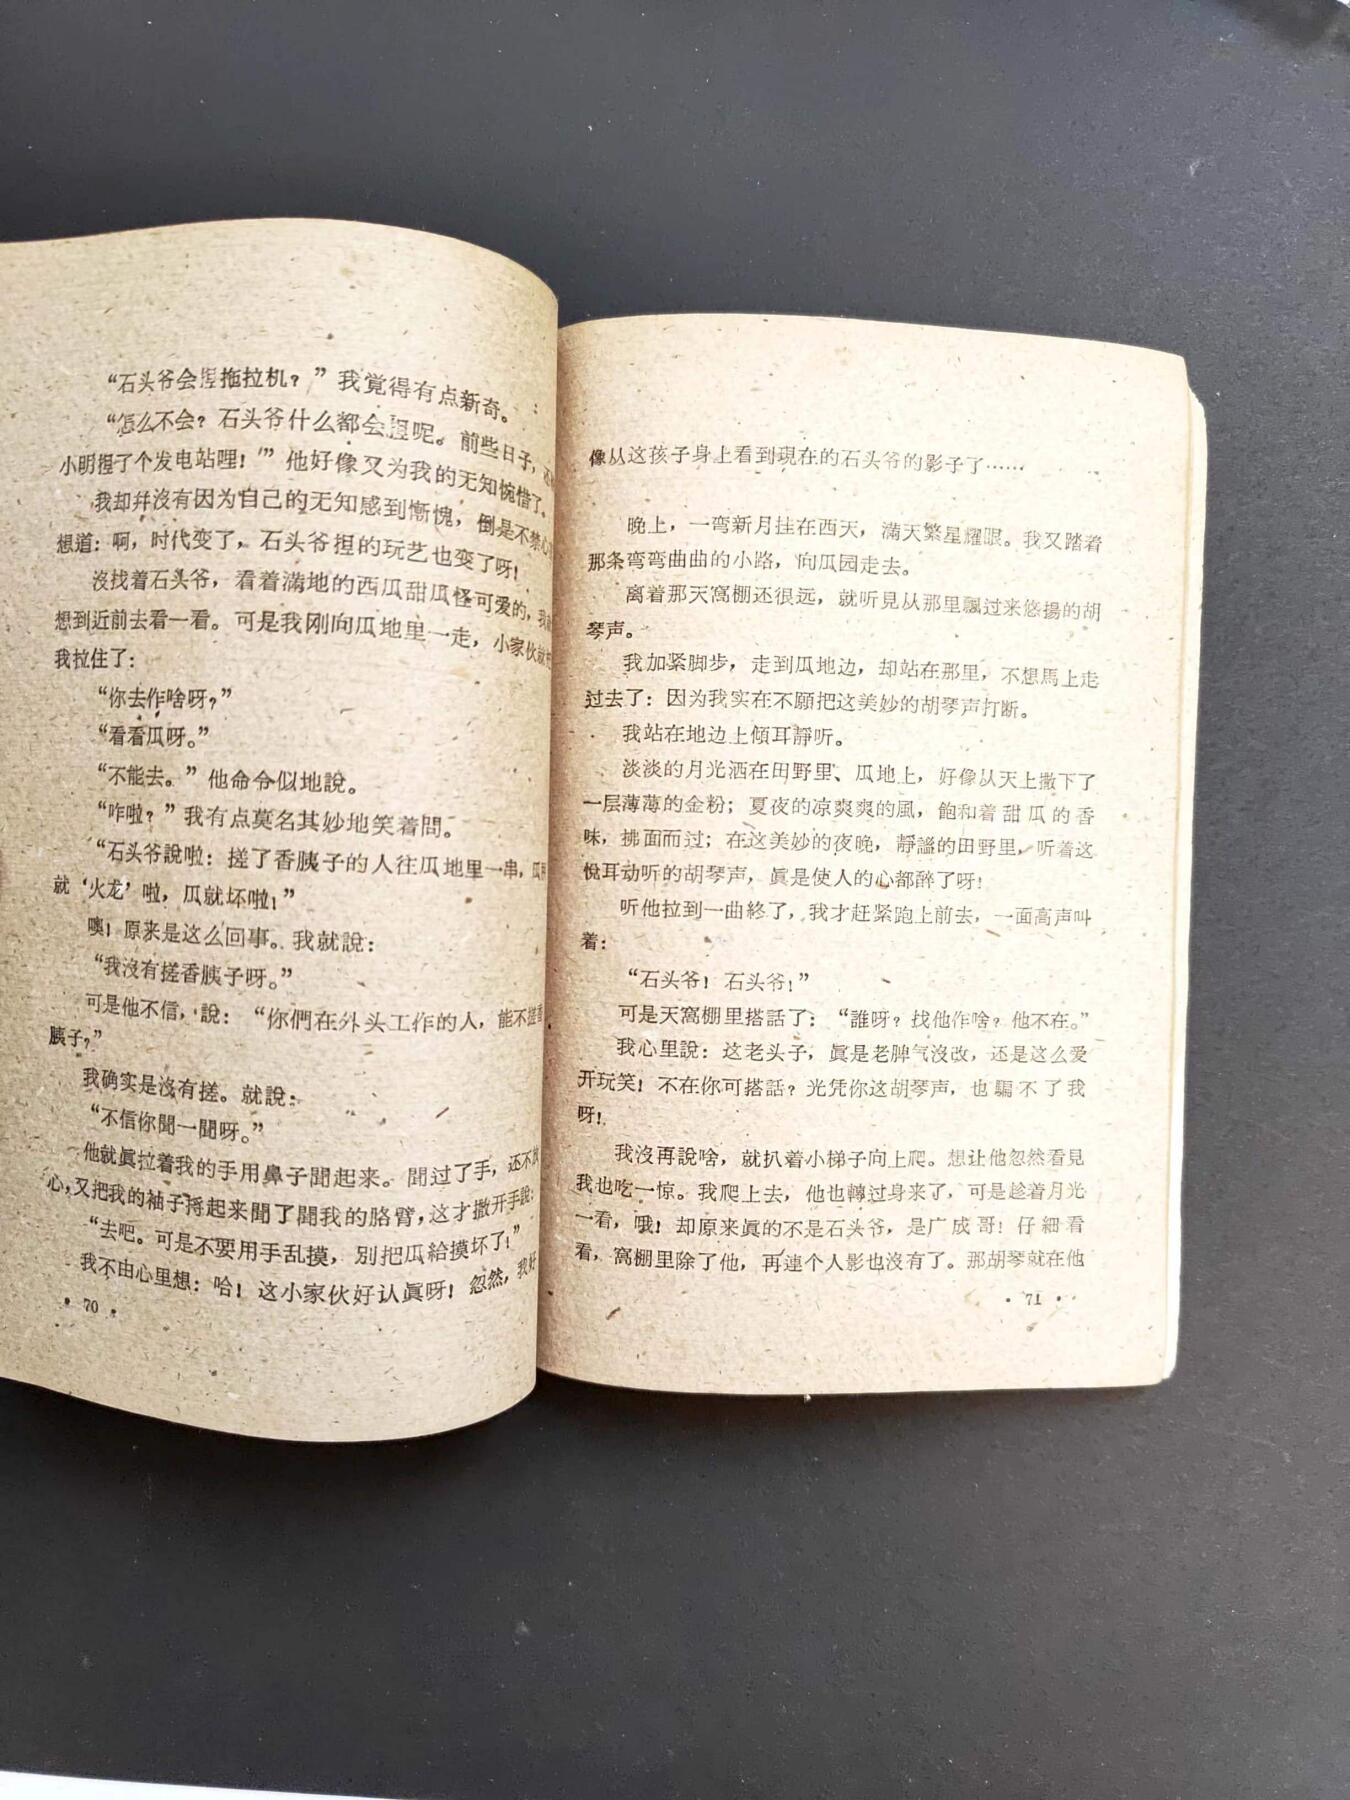 “石头爷会捏拖拉机？”我覚得有点新奇。
“怎么不会？石头爷什么都会捏呢。前些日子，还
小明捏了个发电站哩！’”他好像又为我的无知惋惜了。
我却幷沒有因为自己的无知感到惭愧，倒是不禁心
想道：啊，时代变了，石头爷捏的玩艺也变了呀！
沒找着石头爷，看着滿地的西瓜甜瓜怪可爱的，我
想到近前去看一看。可是我刚向瓜地里一走，小家伙就
我拉住了：
“你去作啥呀？”
“看看瓜呀。”
“不能去。”他命令似地說。
“咋啦？”我有点莫名其妙地笑着問。
“石头爷說啦：搓了香胰子的人往瓜地里一串，瓜
就‘火龙’啦，瓜就坏啦！”
噢！原来是这么回事。我就說：
“我沒有搓香胰子呀。”
可是他不信，說：“你們在外头工作的人，能不搓香
胰子？”
我确实是沒有搓。就說：
“不信你聞一聞呀。”
他就眞拉着我的手用鼻子聞起来。聞过了手，还不放
心，又把我的袖子捋起来聞了聞我的胳臂，这才撒开手說：
“去吧。可是不要用手乱摸，別把瓜給摸坏了！”
我不由心里想：哈！这小家伙好认眞呀！忽然，我好
• 70 •
像从这孩子身上看到現在的石头爷的影子了……
晚上，一弯新月挂在西天，滿天繁星耀眼。我又踏着
那条弯弯曲曲的小路，向瓜园走去。
离着那天窩棚还很远，就听見从那里飄过来悠揚的胡
琴声。
我加紧脚步，走到瓜地边，却站在那里，不想馬上走
过去了：因为我实在不願把这美妙的胡琴声打断。
我站在地边上傾耳靜听。
淡淡的月光洒在田野里、瓜地上，好像从天上撒下了
一层薄薄的金粉；夏夜的凉爽爽的風，飽和着甜瓜的香
味，拂面而过；在这美妙的夜晚，靜謐的田野里，听着这
悅耳动听的胡琴声，眞是使人的心都醉了呀！
听他拉到一曲終了，我才赶紧跑上前去，一面高声叫
着：
“石头爷！石头爷！”
可是天窩棚里搭話了：“誰呀？找他作啥？他不在。”
我心里說：这老头子，眞是老脾气沒改，还是这么爱
开玩笑！不在你可搭話？光凭你这胡琴声，也騙不了我
呀！
我沒再說啥，就扒着小梯子向上爬。想让他忽然看見
我也吃一惊。我爬上去，他也轉过身来了，可是趁着月光
一看，哦！却原来眞的不是石头爷，是广成哥！仔細看
看，窩棚里除了他，再連个人影也沒有了。那胡琴就在他
• 71 •